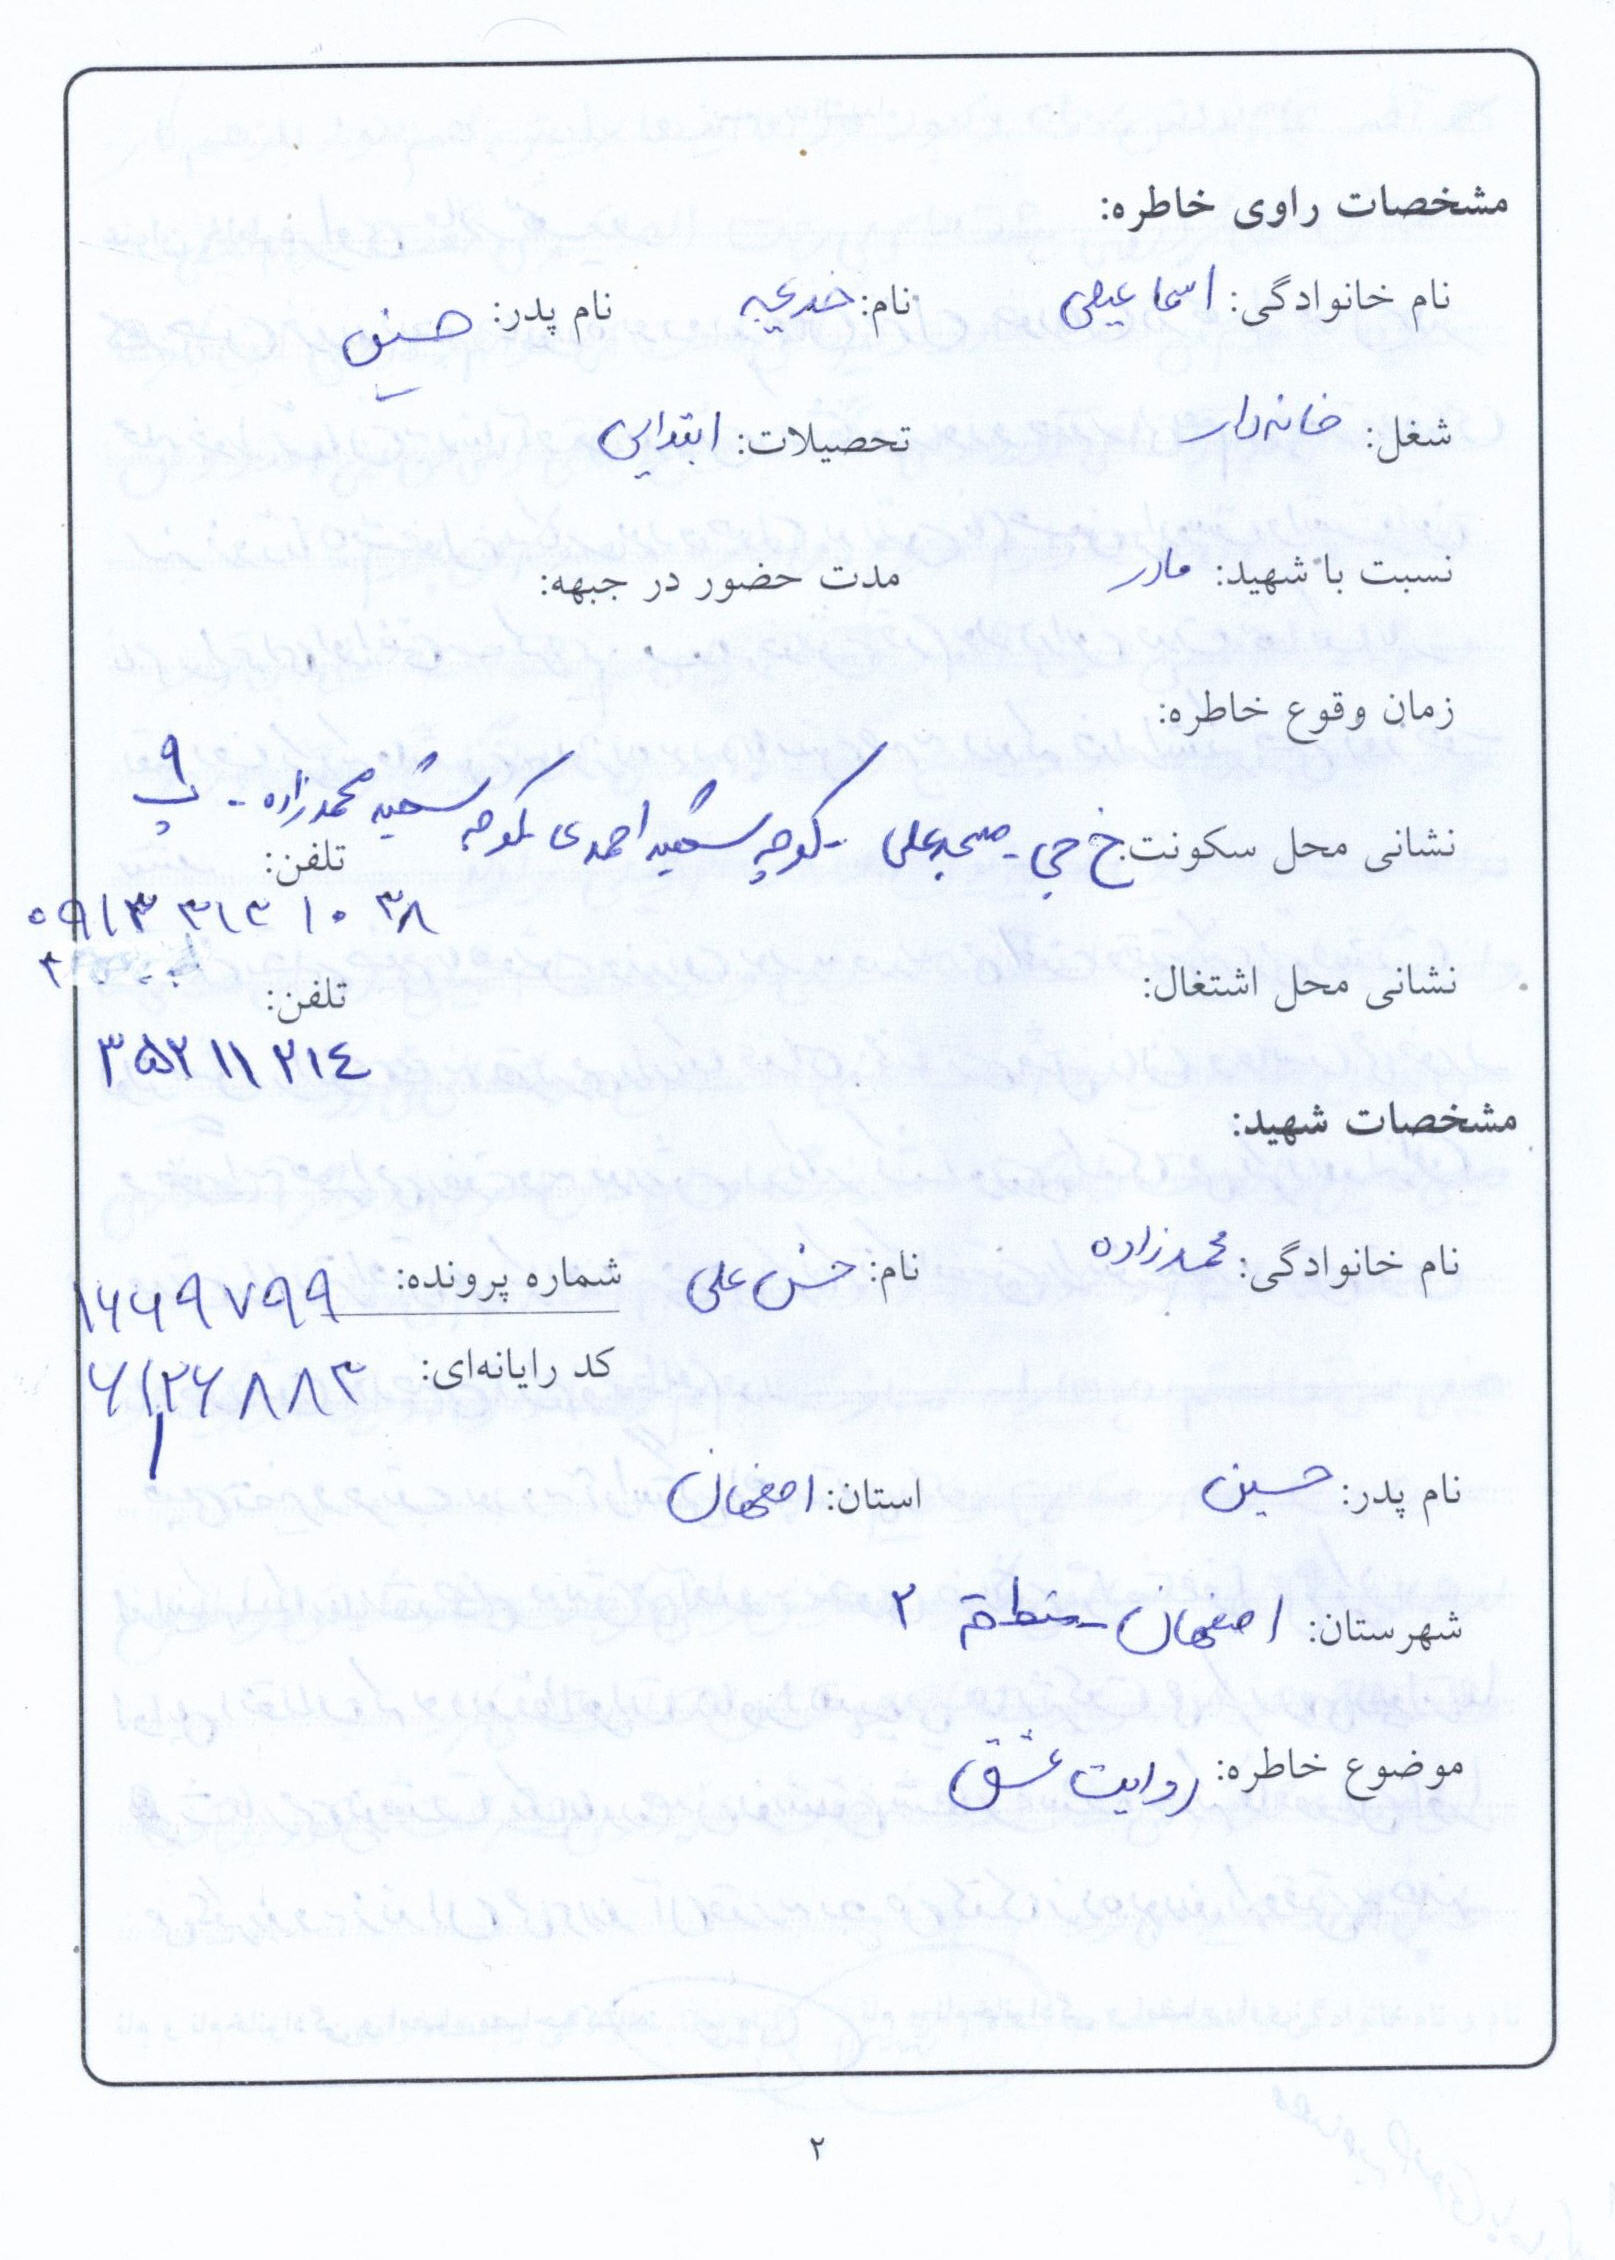 مشخصات راوی خاطره:
نام خانوادگی: اسماعیلی نام: خدیجه نام پدر: حسین
شغل: خانه‌دار تحصیلات: ابتدایی
نسبت با شهید: مادر مدت حضور در جبهه:
زمان وقوع خاطره:
نشانی محل سکونت: خ جی - مسجد علی - کوچه شهید احمدی کوچه شهید محمدزاده - پ ۹
تلفن:
۰۹۱۳ ۳۱۳ ۱۰ ۳۸
نشانی محل اشتغال: تلفن:
۳۵۲ ۱۱ ۲۱۴
مشخصات شهید:
نام خانوادگی: محمدزاده نام: حسن علی شماره پرونده: ۱۶۶۹۷۹۹
کد رایانه‌ای: ۶۱۲۶۸۸۳
نام پدر: حسین استان: اصفهان
شهرستان: اصفهان - منطقه ۲
موضوع خاطره: روایت عشق
۲